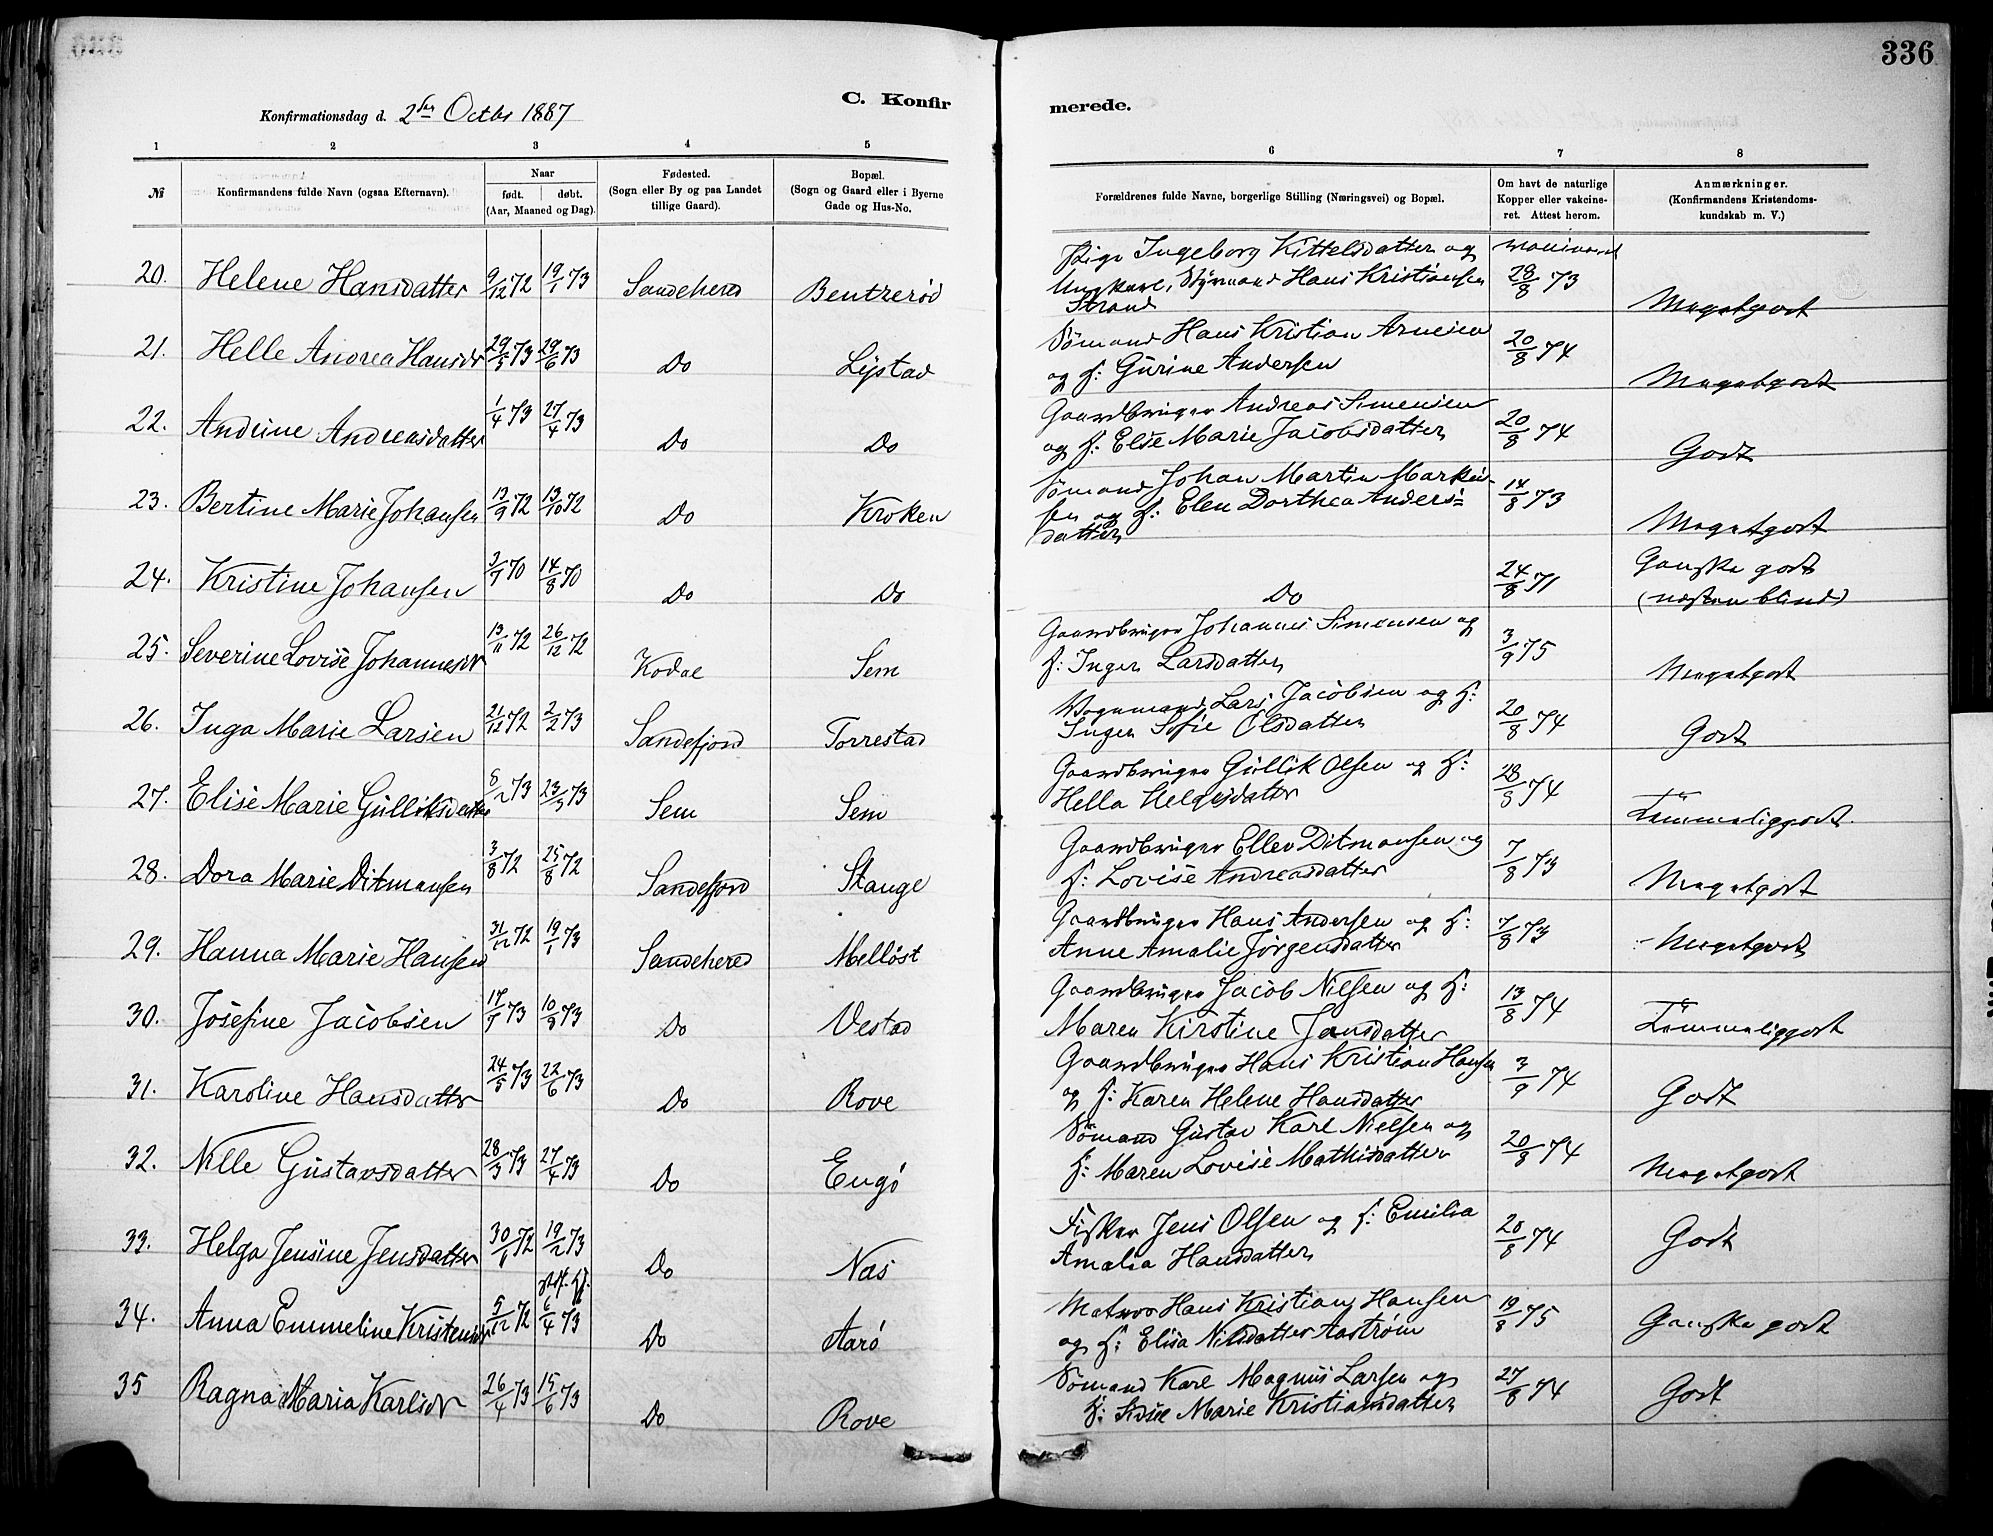 336
C. Konfirmerede.
Konfirmationsdag d. 2den Octbr 1887
1 2 3 4 5 6 7 8
№ Konfirmandens fulde Navn (ogsaa Efternavn). Naar født. døbt. (Aar, Maaned og Dag). Fødested. (Sogn eller By og paa Landet tillige Gaard). Bopæl. (Sogn og Gaard eller i Byerne Gade og Hus-No. Forældrenes fulde Navne, borgerlige Stilling (Næringsvei) og Bopæl. Om havt de naturlige Kopper eller vakcineret. Attest herom. Anmærkninger. (Konfirmandens Kristendomskundskab m. V.)
20. Helene Hansdatter 9/12 72 19/1 73 Sandeherred Bentzerød Pige Ingeborg Kittelsdatter og
Ungkarl, Styrmand Hans Kristiansen 28/8 73
Strand Megetgodt
21. Helle Andrea Hansdr 29/5 73 29/6 73 Do Lystad Sømand Hans Kristian Arnesen 20/8 74
og H: Gurine Andersen Megetgodt
22. Andrine Andreasdatter 1/4 73 27/4 73 Do Do Gaardbruger Andreas Simensen
og H: Elise Marie Jacobsdatter 20/8 74 Godt
23. Bertine Marie Johansen 13/9 72 13/10 72 Do Kroken Sømand Johan Martin Markus-
sen og H: Elen Dorthea Anders-
datter 14/8 73 Megetgodt
24. Kristine Johansen 3/7 70 14/8 70 Do Do Do 24/8 71 Ganske godt
(næsten blind)
25. Severine Lovise Johannesdr 13/11 72 26/12 72 Kodal Sem Gaardbruger Johannes Simensen og
H: Inger Larsdatter 3/9 75 Megetgodt
26. Inga Marie Larsen 21/12 72 2/2 73 Sandefjord Torrestad Vognmand Lars Jacobsen og H:
Inger Sofie Olsdatter 20/8 74 Godt
27. Elise Marie Gulliksdatter 8/2 73 23/3 73 Sem Sem Gaardbruger Gullik Olsen og H:
Helle Helgesdatter 28/8 74 Temmeliggodt.
28. Dora Marie Ditmansen 3/8 72 25/8 72 Sandefjord Stange Gaardbruger Ellev Ditmansen og
H: Lovise Andreasdatter 7/8 73 Megetgodt
29. Hanna Marie Hansen 31/12 72 19/1 73 Sandeherred Melløst Gaardbruger Hans Andersen og H:
Anne Amalie Jørgensdatter 7/8 73 Megetgodt
30. Josefine Jacobsen 17/5 73 10/8 73 Do Vestad Gaardbruger Jacob Nilsen og H:
Maren Kirstine Jansdatter 13/8 74 Temmeliggodt
31. Karoline Hansdatter 24/5 73 22/6 73 Do Rove Gaardbruger Hans Kristian Hansen
og H: Karen Helene Hansdatter 3/9 74 Godt
32. Nille Gustavsdatter 28/3 73 27/4 73 Do Engø Sømand Gustav Karl Nielsen og
H: Maren Lovise Mathisdatter 20/8 74 Megetgodt
33. Helga Jensine Jensdatter 19/2 73 Do Næs Fisker Jens Olsen og H: Emilia
Amalia Hansdatter 20/8 74 Godt
34. Anna Emmeline Kristensdr 5/12 72 6/4 73 Do Aarø Matros Hans Kristian Hansen
og H: Elisa Nilsdatter Aastrøm 19/8 75 Ganske godt
35 Ragna Maria Karlsdr 26/4 73 15/6 73 Do Rove Sømand Karl Magnus Larsen og
H: Marie Kristiansdatter 27/8 74 Godt